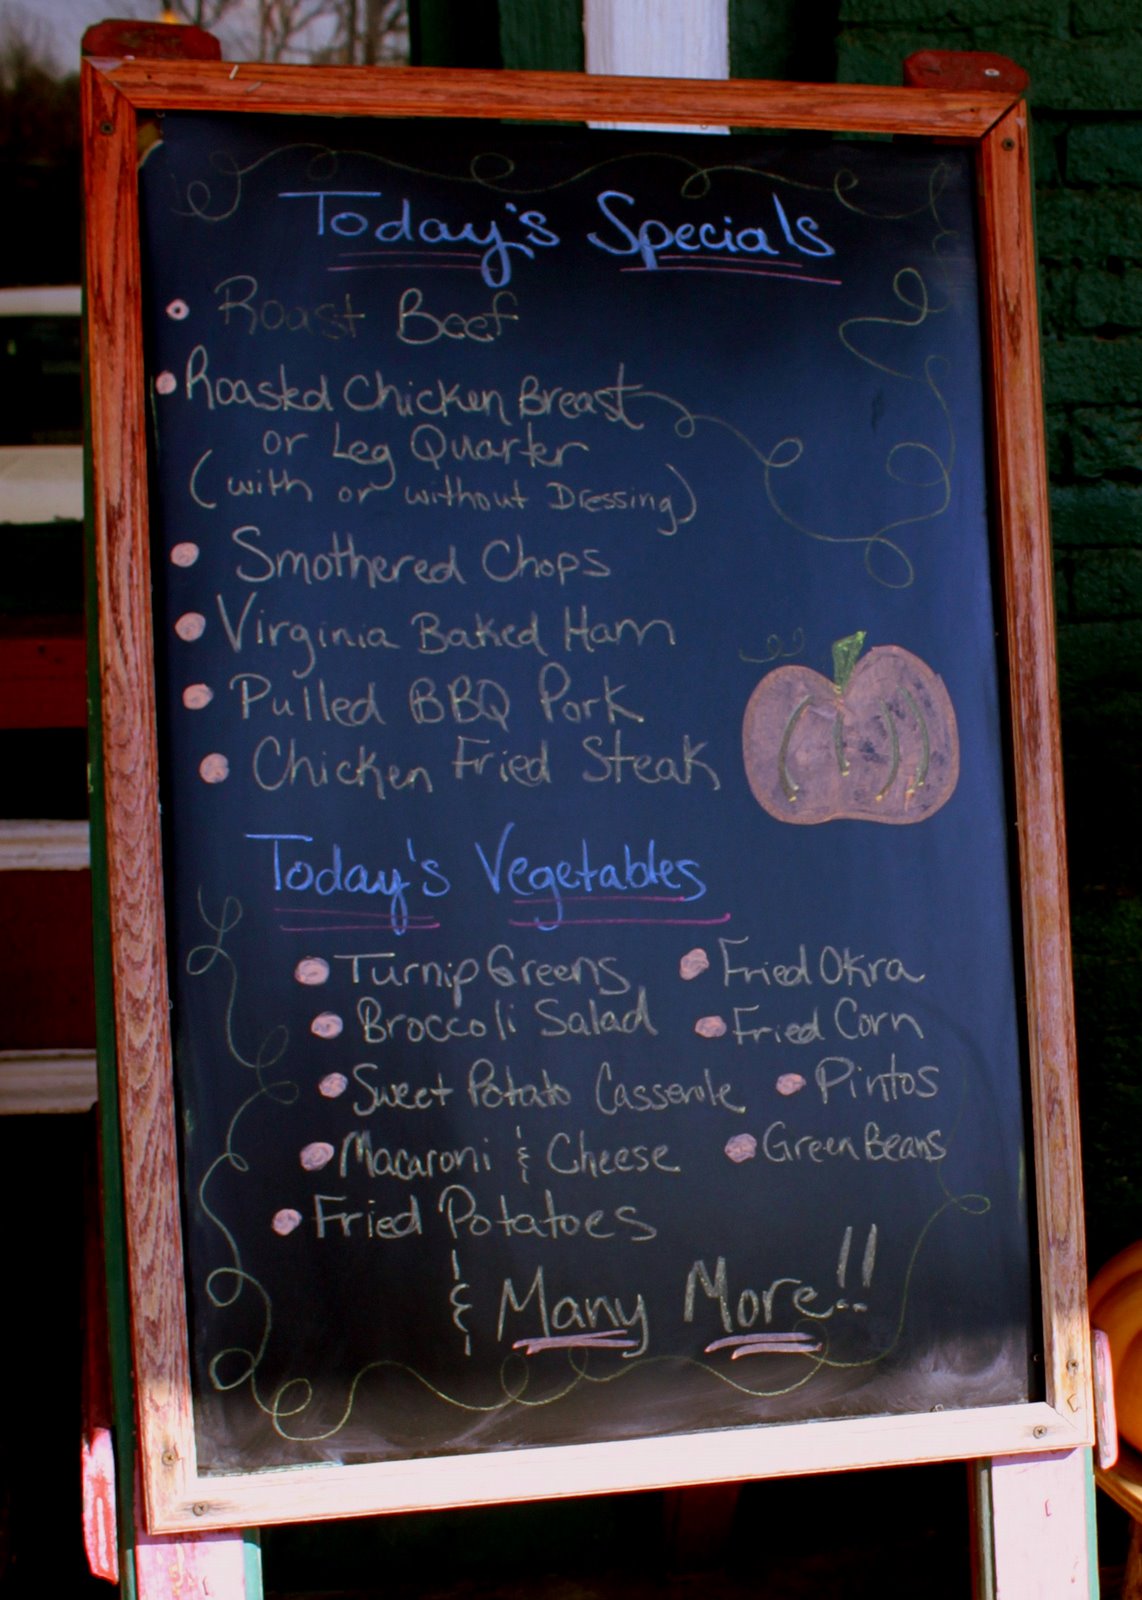 Today's Specials
Roast Beef
Roasted Chicken Breast
or Leg Quarter
(with or without Dressing)
Smothered Chops
Virginia Baked Ham
Pulled BBQ Pork
Chicken Fried Steak
Today's Vegetables
Turnip Greens Fried Okra
Broccoli Salad Fried Corn
Sweet Potato Casserole Pintos
Macaroni & Cheese Green Beans
Fried Potatoes
& Many More!!